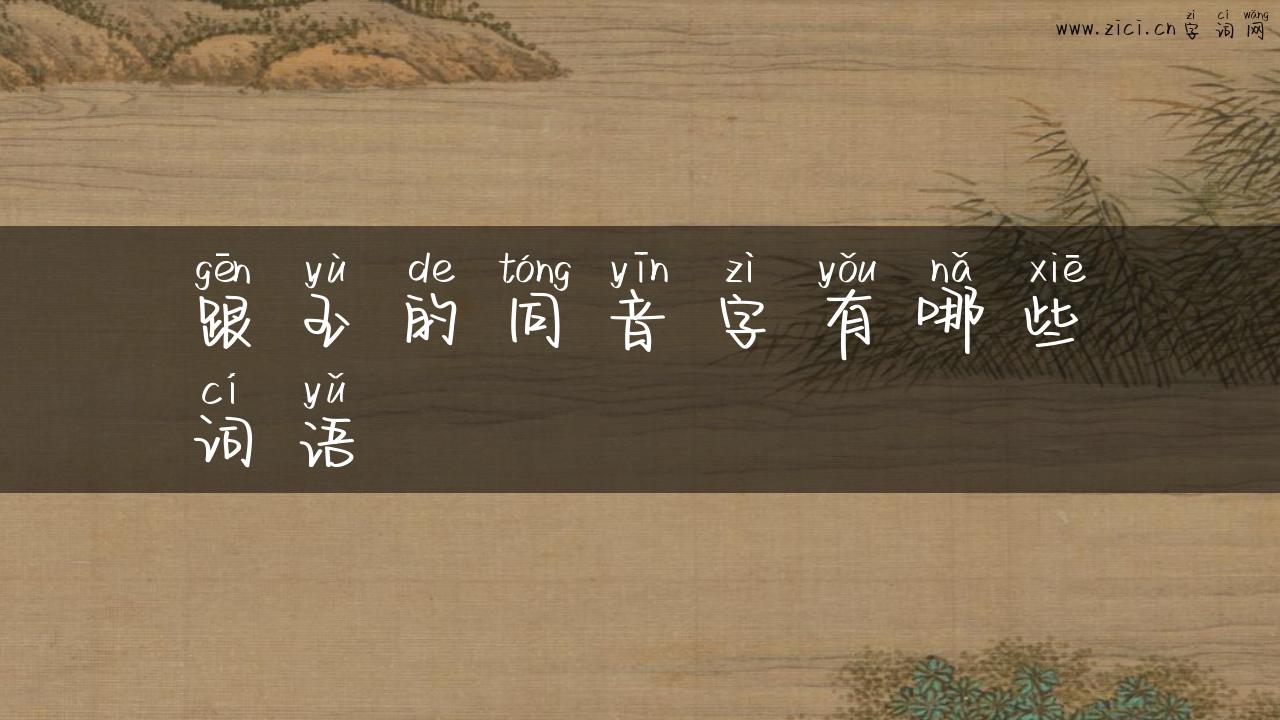 www.zici.cn zì cí wǎng
字词网
gēn yù de tóng yīn zì yǒu nǎ xiē
跟玉的同音字有哪些
cí yǔ
词语